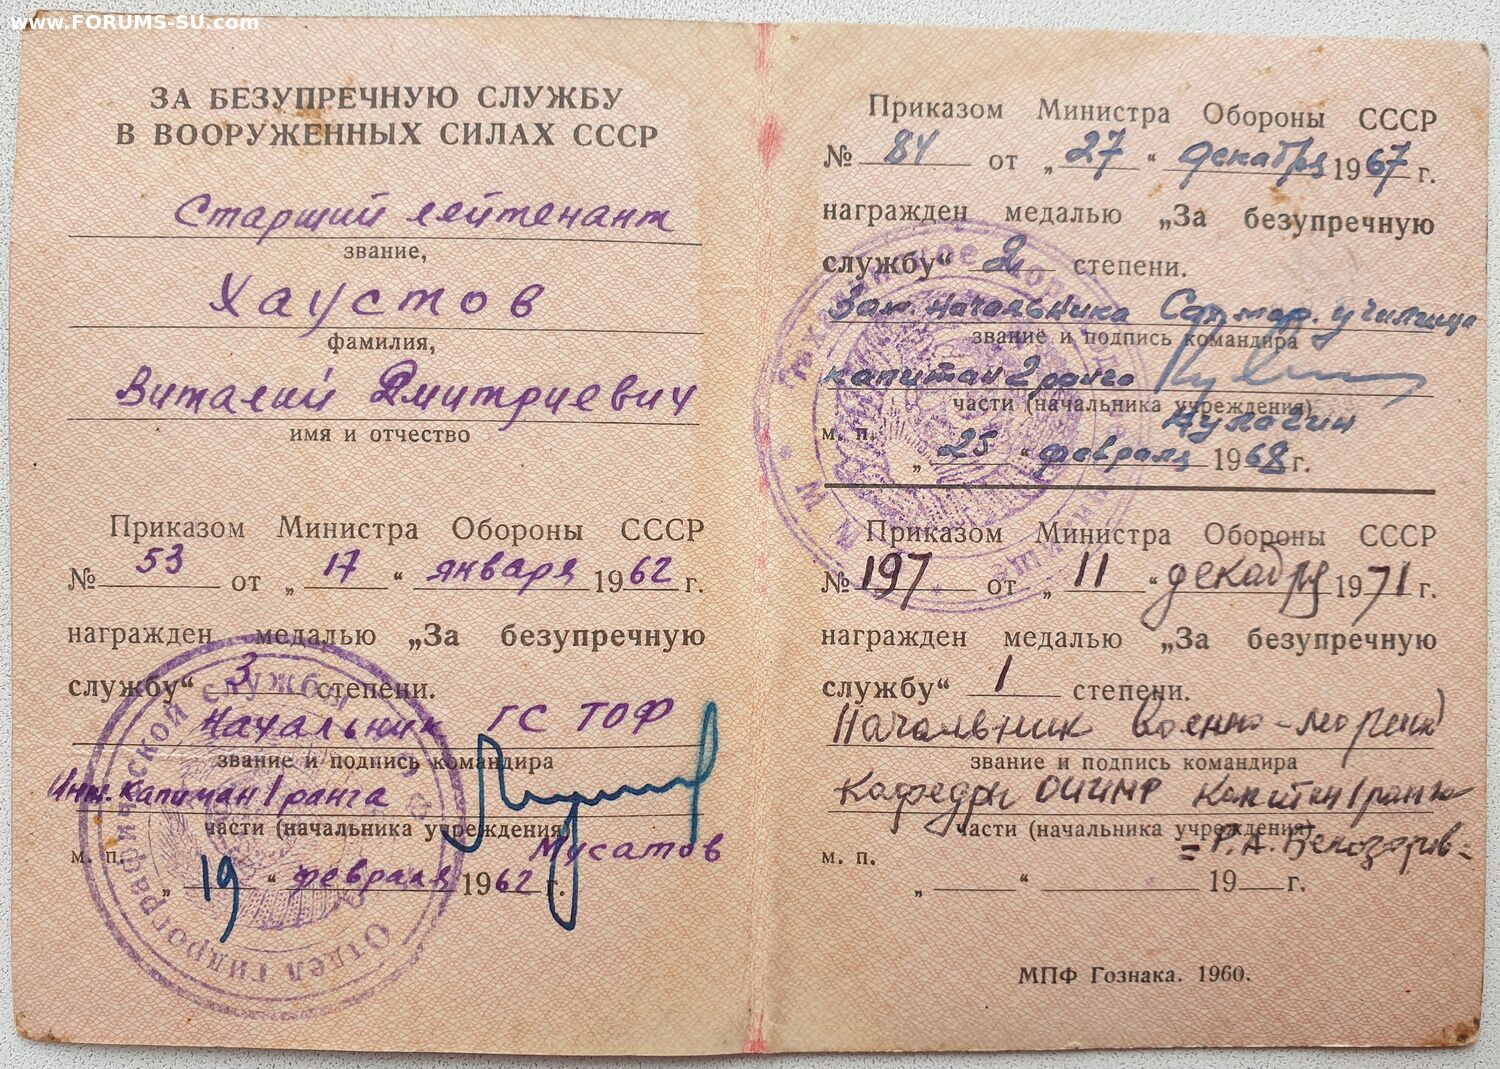 www.FORUMS-SU.com
ЗА БЕЗУПРЕЧНУЮ СЛУЖБУ
В ВООРУЖЕННЫХ СИЛАХ СССР
Старший лейтенант
звание,
Хаустов
фамилия,
Виталий Дмитриевич
имя и отчество
Приказом Министра Обороны СССР
№ 53 от „17“ января 1962 г.
награжден медалью „За безупречную
службу“ 3 степени.
Начальник ГС ТОФ
звание и подпись командира
Инж. капитан 1 ранга
части (начальника учреждения)
Мусатов
м. п.
„19“ февраля 1962 г.
Отдел Гидрографической службы
Приказом Министра Обороны СССР
№ 84 от „27“ декабря 1967 г.
награжден медалью „За безупречную
службу“ 2 степени.
Зам. начальника Сах. мор. училища
звание и подпись командира
капитан 2 ранга
части (начальника учреждения)
м. п.
„25“ февраля 1968 г.
Приказом Министра Обороны СССР
№ 197 от „11“ декабря 1971 г.
награжден медалью „За безупречную
службу“ 1 степени.
Начальник Военно-морской
звание и подпись командира
Кафедры капитан 1 ранга
части (начальника учреждения)
м. п.
„ “ 19 г.
МПФ Гознака. 1960.